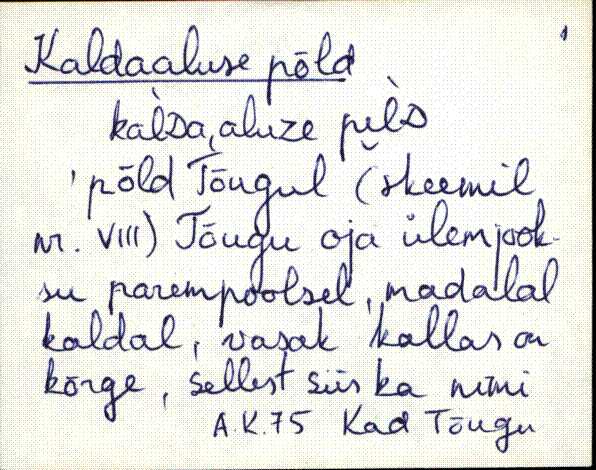 1
Kaldaaluse põld
põld Tõugul (skeemil
nr. VIII) Tõugu oja ülemjook-
su parempoolsel, madalal
kaldal, vasak kallas on
kõrge, sellest siis ka nimi
A.K.75 Kad Tõugu